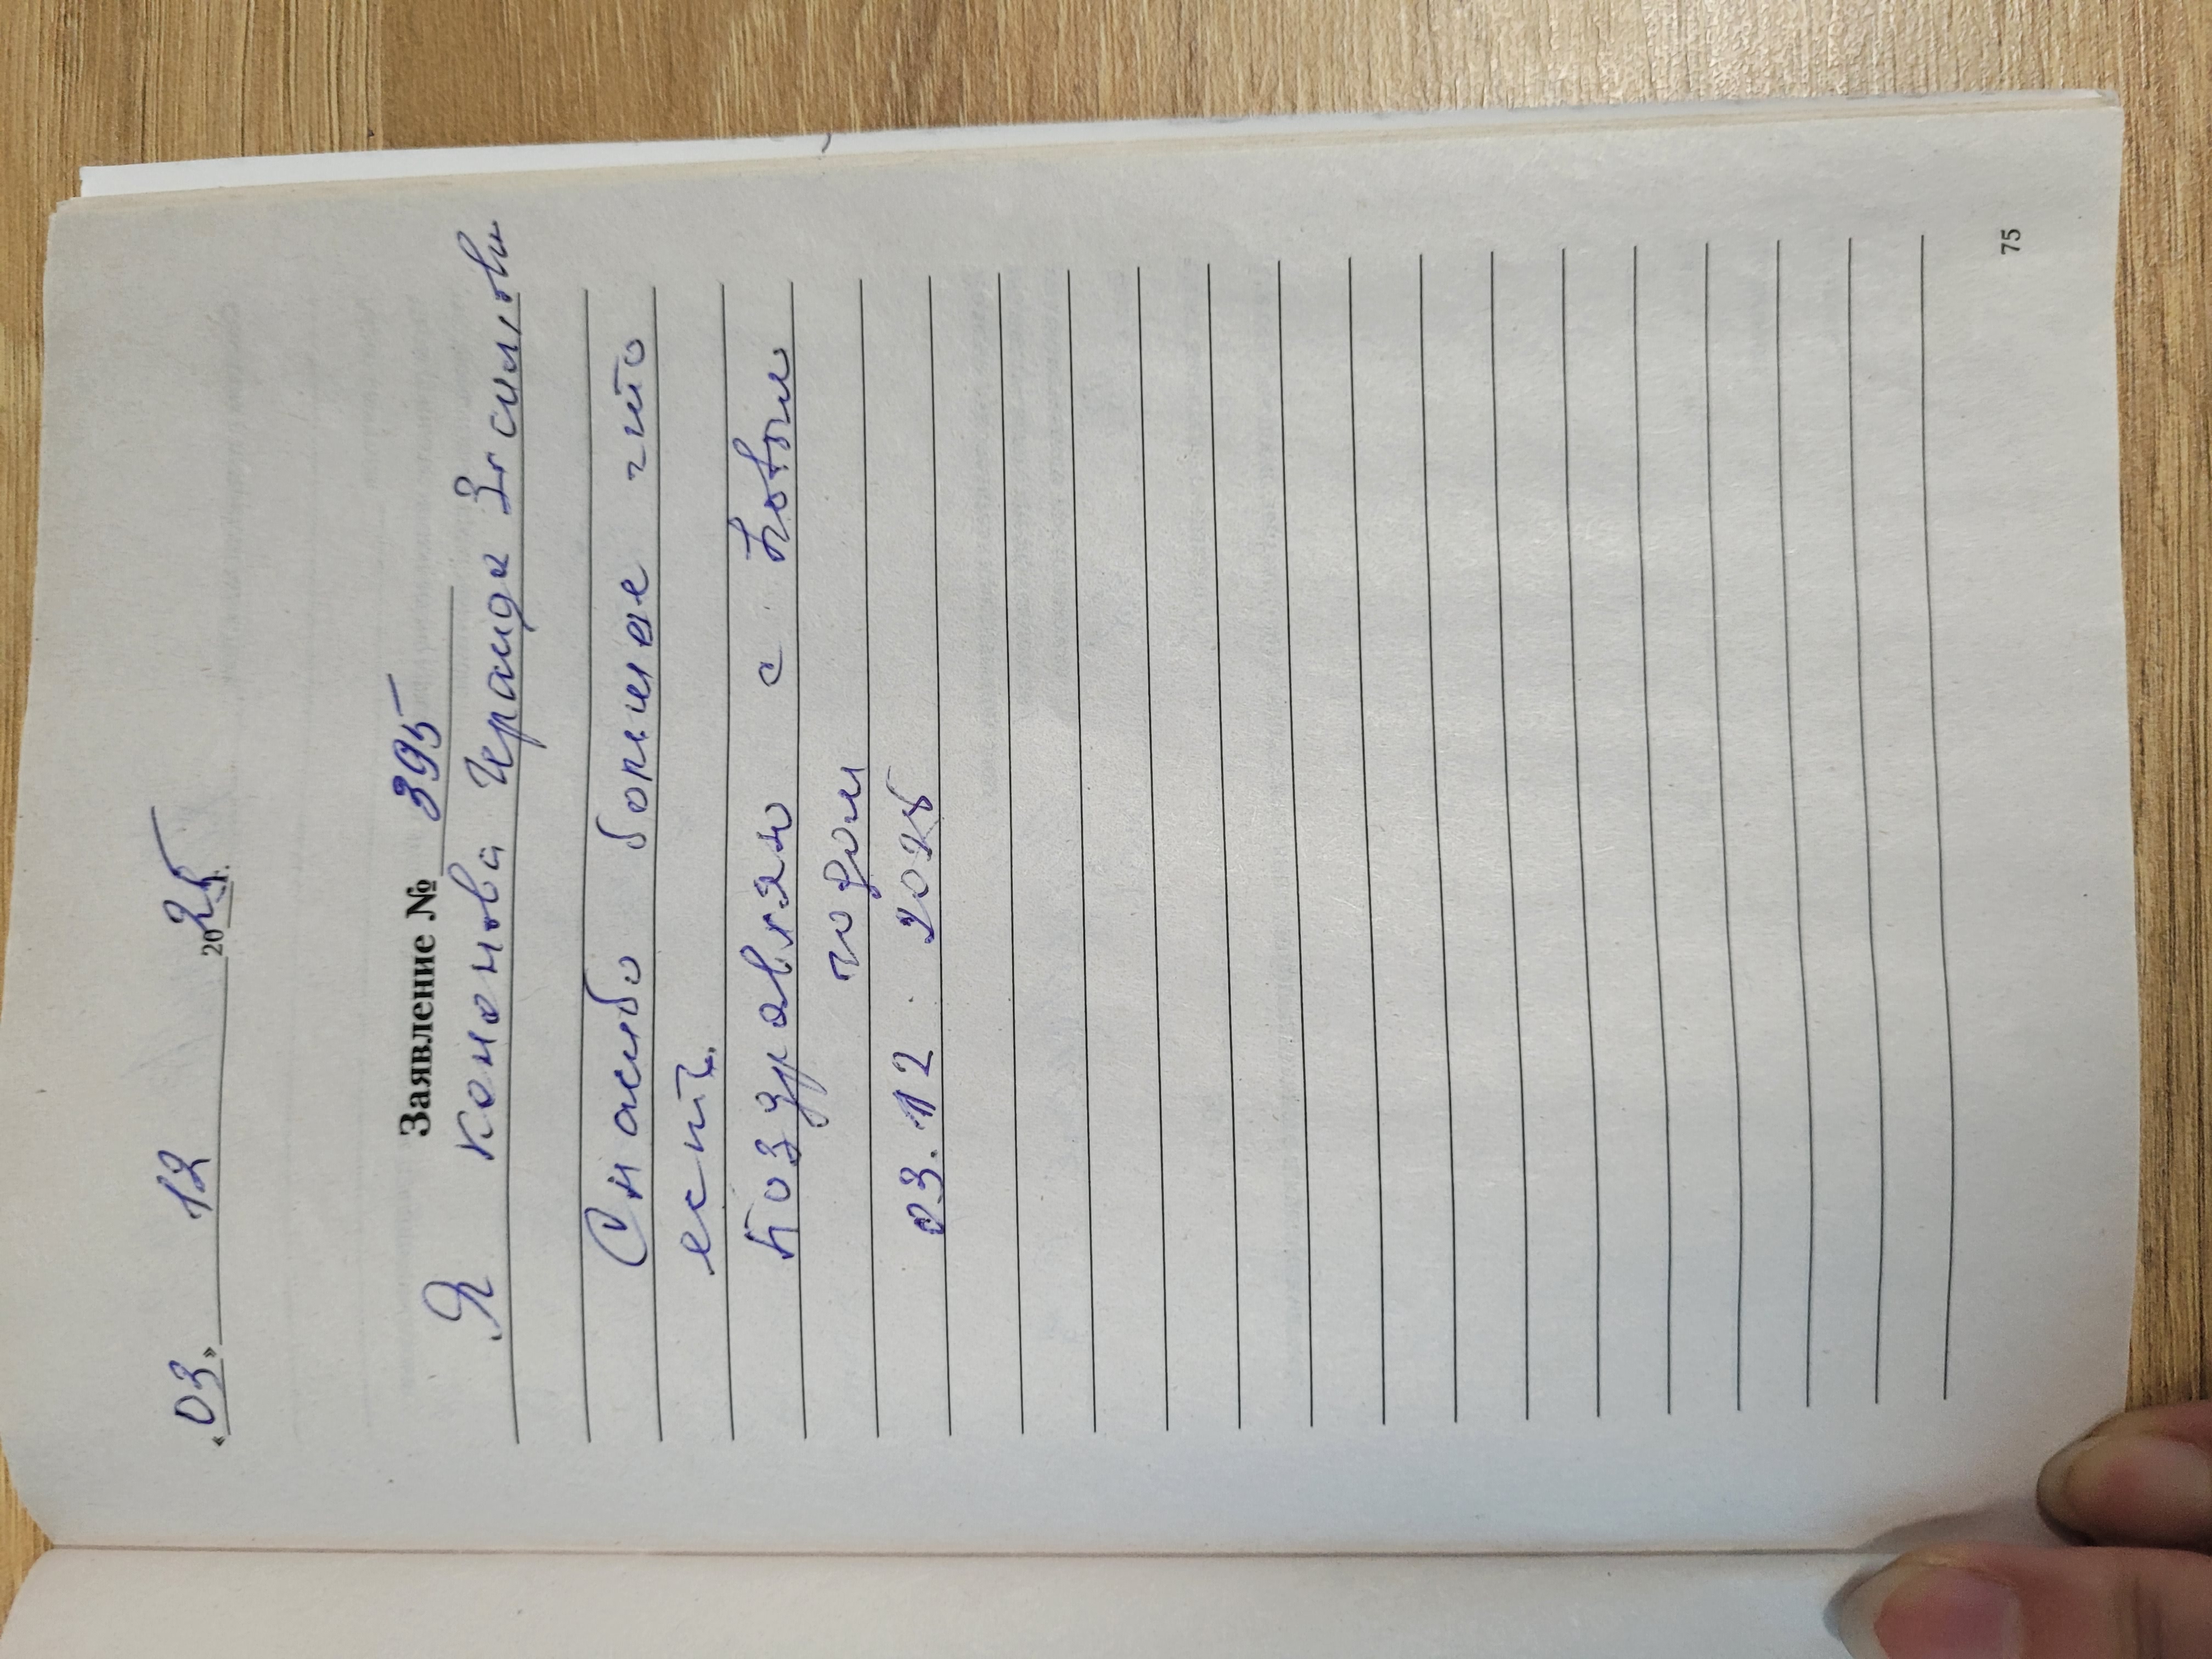 «03» 12 2025 г.
Заявление № 395
Я Кононова Ираида
Спасибо большое что
есть.
Поздравляю с Новым
годом
03.12.2025
75